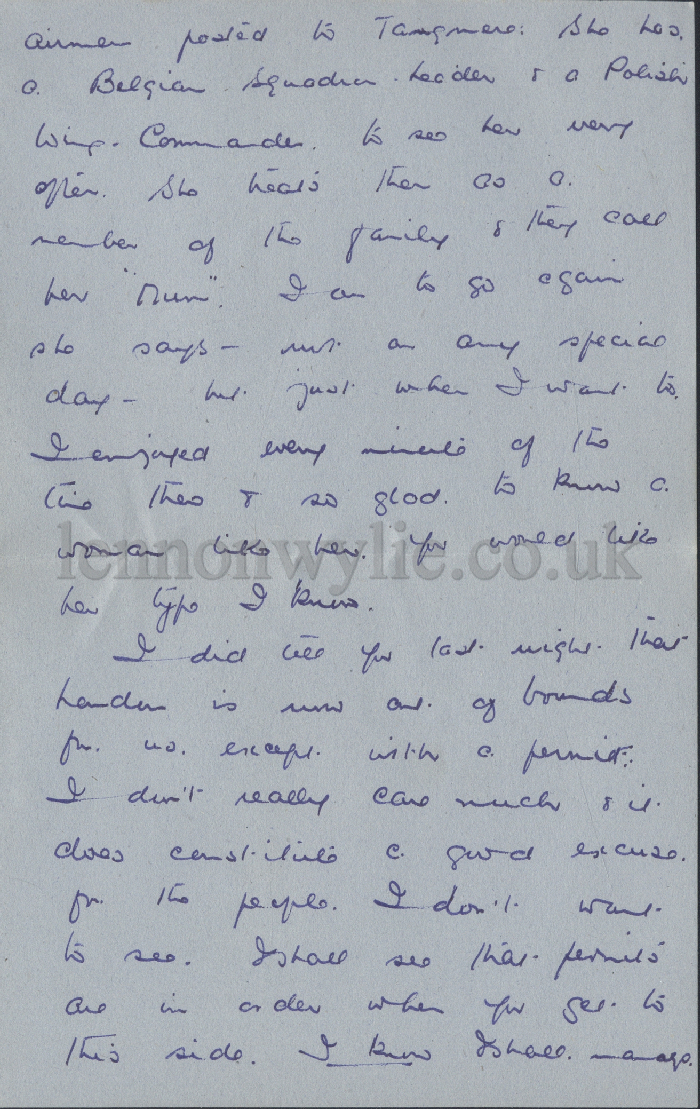 airmen posted to Tangmere. She has
a Belgian Squadron Leader & a Polish
Wing-Commander to see her very
often. She treats them as a
member of the family & they call
her "Mum". I am to go again
she says – not on any special
day – but just when I want to.
I enjoyed every minute of the
time there & so glad to know a
woman like her. You would like
lennonwylie.co.uk
her type I know.
I did tell you last night that
London is now out of bounds
for us except with a permit.
I don't really care much & it
does constitute a good excuse
for the people I don't want
to see. I shall see that permits
are in order when you get to
this side. I know I shall manage